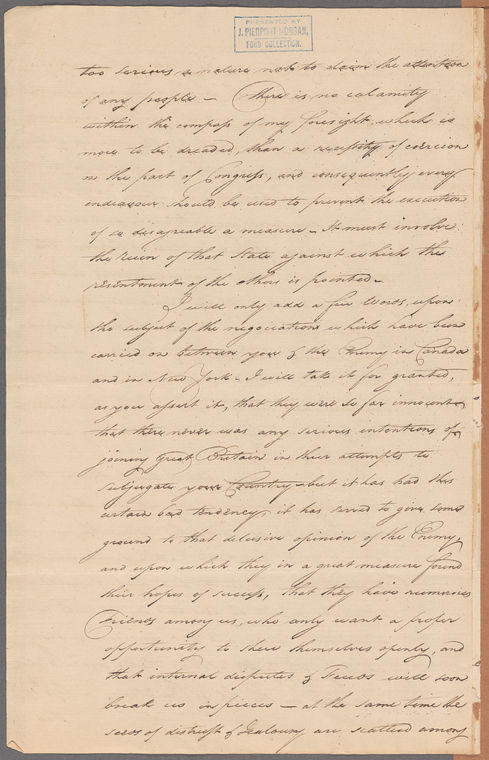 PRESENTED BY
J. PIERPONT MORGAN.
FORD COLLECTION.
too serious a nature not to claim the attention
of any people – There is no calamity
within the compass of my foresight, which is
more to be dreaded, than a necessity of coercion
on the part of Congress, and consequently every
endeavour should be used to prevent the execution
of so disagreable a measure – It must involve
the ruin of that State against which the
resentment of the others is pointed –
I will only add a few Words, upon
the subject of the negociations which have been
carried on between you & the Enemy in Canada
and in New York – I will take it for granted,
as you assert it, that they were so far innocent
that there never was any serious intentions of
joining Great Britain in their attempts to
subjugate your Country – but it has had this
certain bad tendency, it has served to give some
ground to that delusive opinion of the Enemy,
and upon which they in a great measure found
their hopes of success, that they have numerous
Friends among us, who only want a proper
opportunity to shew themselves openly, and
that internal disputes & Feuds will soon
break us in pieces – at the same time the
seeds of distrust & Jealousy are scatted among